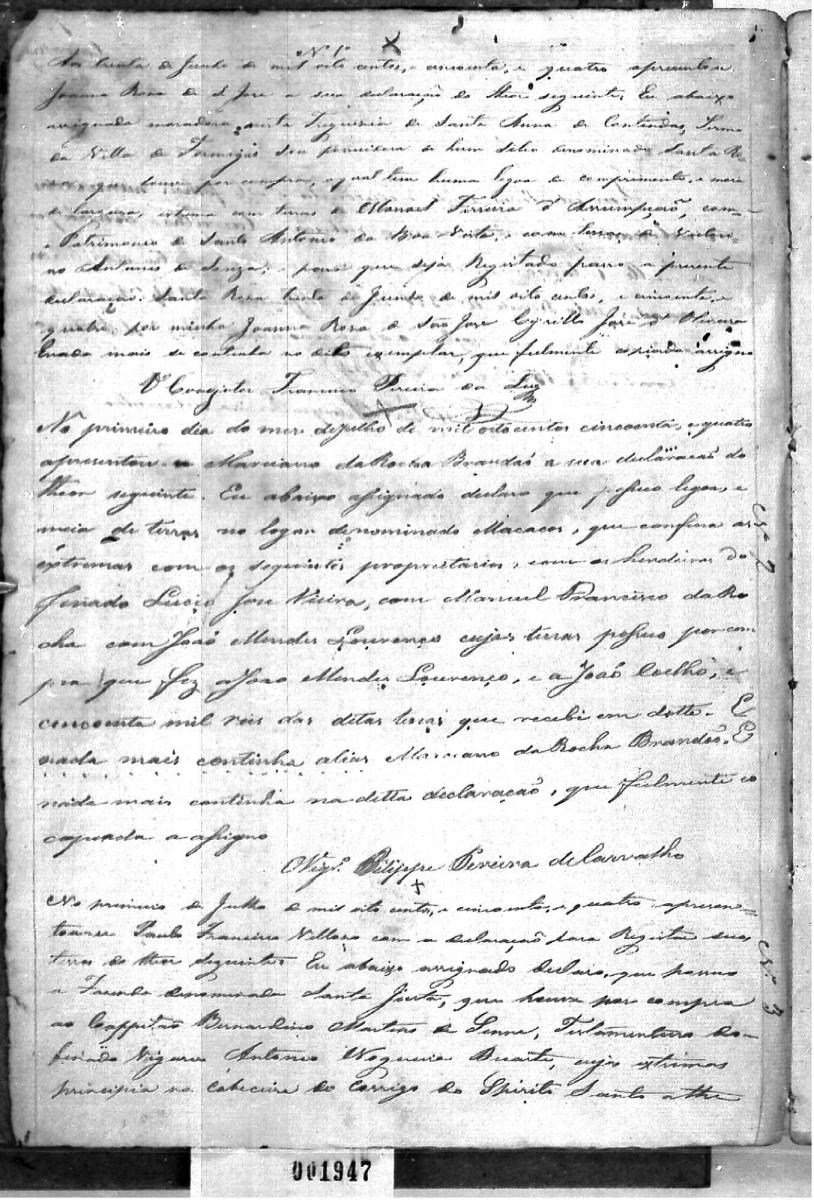 N. 1º
Aos trinta de Junho de mil oito centos, e cincoenta, e quatro apresentou
Joanna Rosa de S. Jose a sua declaração do theor seguinte. Eu abaixo
assignada moradora nesta Freguesia de Santa Anna de Contendas, Termo
da Villa de Formigas sou possuidora de hum sitio denominado Santa Ro-
sa que houve por compra, o qual tem huma legoa de comprimento, e meia
de largura, extrema com terras de Manoel Ferreira d'Assumpção, com
o Patrimonio de Santo Antonio da Boa Vista, e com terras de Victori-
no Antonio de Souza; e para que seja Registado passo a presente
declaração. Santa Rosa trinta de Junho de mil oito centos, e cincoenta, e
quatro, por minha Joanna Rosa de São Jose Cyrillo Jose d'Oliveira
E nada mais se continha no dito exemplar, que fielmente copiado assigno
O Coadjutor Francisco Pereira da Luz
No primeiro dia do mez dejulho de mil oitocentos cincoenta, e quatro
apresentou-se Marciano daRocha Brandaõ a sua declaracaõ do
theor seguinte. Eu abaixo assignado declaro que posuo legoa, e
meia de terras no logar denominado Macacos, que confina as
extremas com os seguintes proprietarios, com os herdeiros do
finado Lucio Jose Vieira, com Manuel Francisco daRo
cha com Joaõ Mendes Lourenço cujas terras posuo por com
pra que fiz aJoao Mendes Lourenço, e a Joaõ Coelho, e
cincoenta mil reis das ditas terras que recebi em dotte. E
nada mais continha alias Marciano daRocha Brandaõ. E
nada mais continha na ditta declaracaõ, que fielmente co
copiada a assigno
O Vigrº. Filippe Pereira deCarvalho
No primeiro de Julho de mil oito centos, e cincoenta, e quatro apresen-
tou-se Paulo Francisco Vellozo com a declaração para Registar suas
terras do theor seguinte. Eu abaixo assignado declaro, que possuo
a Fazenda denominada Santa Justa, que houve por compra
ao Cappitão Bernardino Martins de Senna, Testamenteiro do
finado Vigario Antonio Nogueira Duarte, cujas extrimas
principia na Cabeceira do Corrigo do Spirito Santo athe
Nº 2
Nº 3
001947